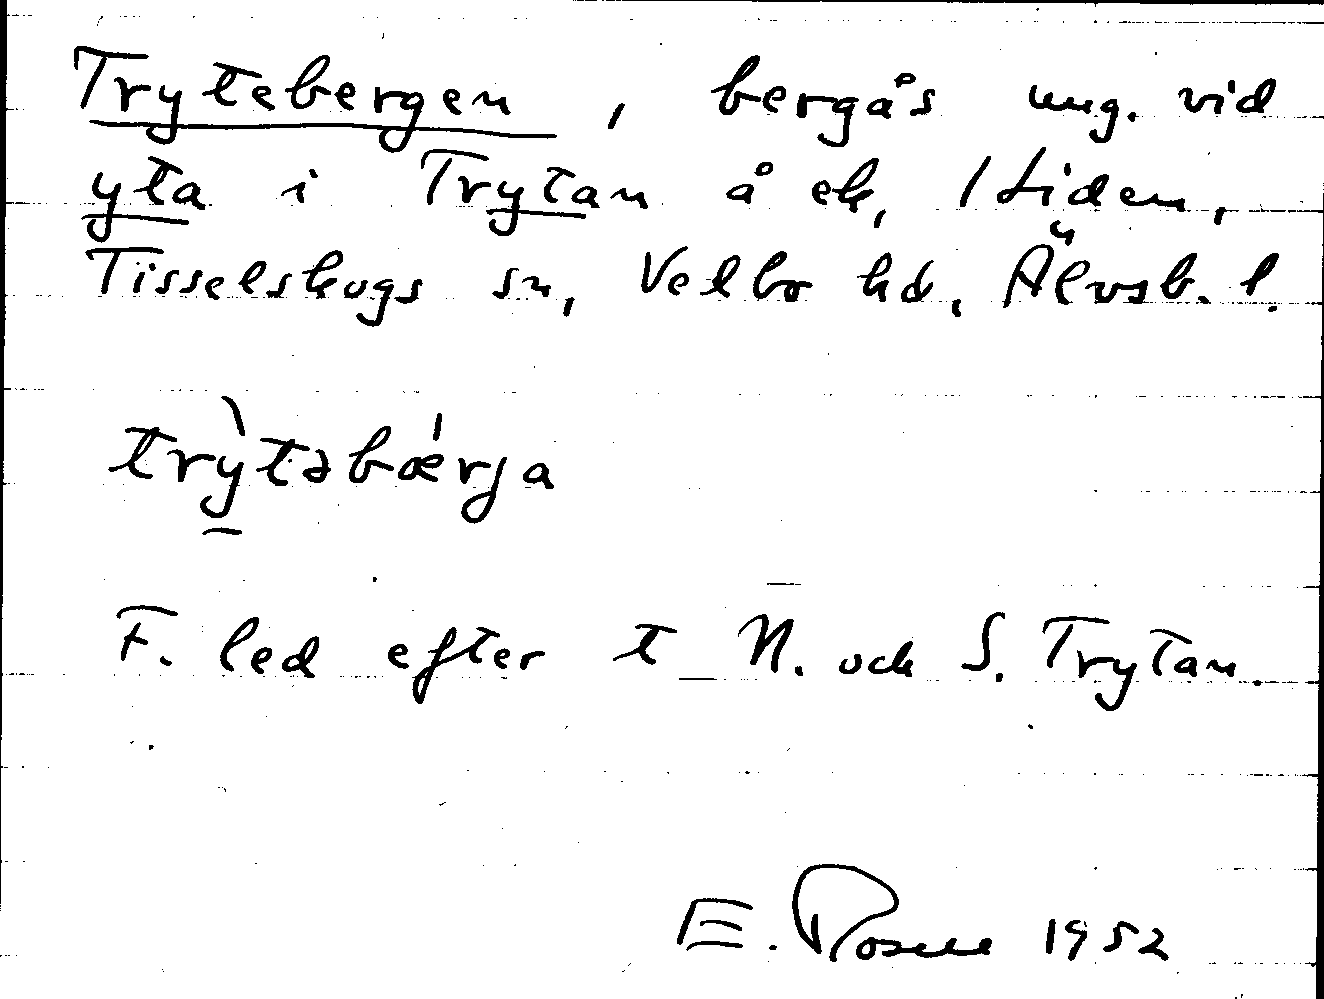 Trytebergen, bergås ung. vid
yta i Trytan å ek, 1 tiden,
Tisselskogs sn, Vedbo hd, Älvsb. l.
trỳtəbǽrja
F. led efter t N. och S. Trytan.
E. Rosell 1952